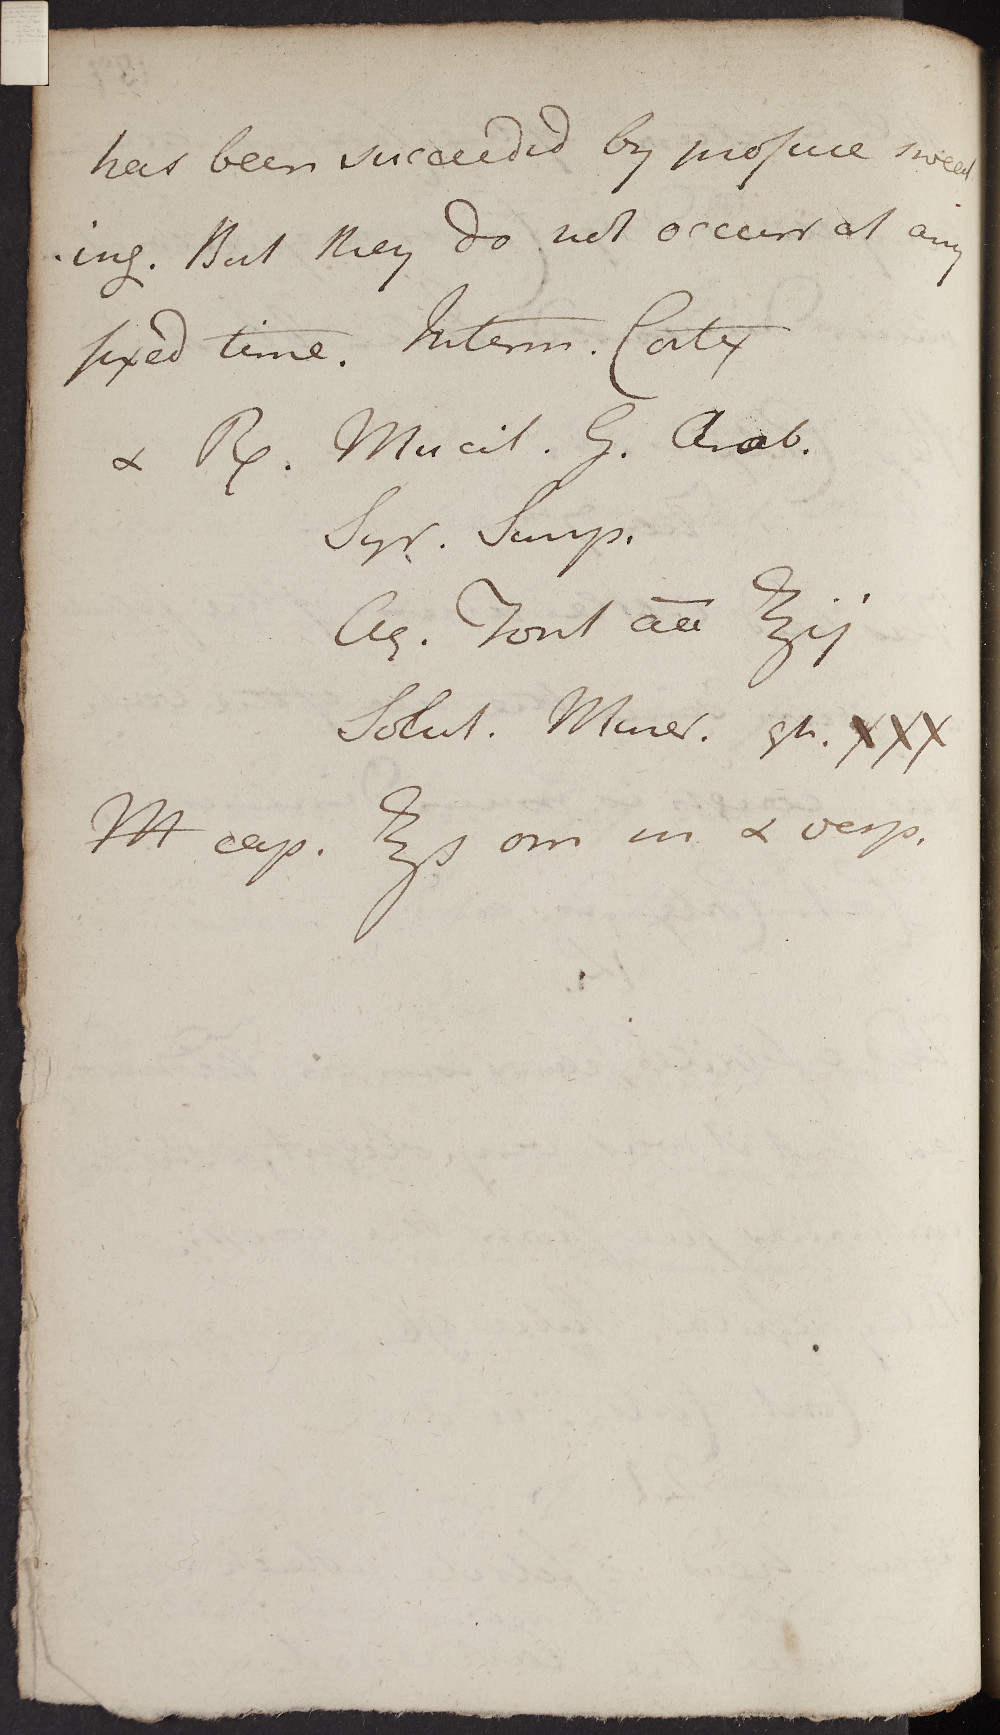 has been succeeded by profuse sweat
-ing. But they do not occurr at any
fixed time. Interm. Cortex
& ℞. Mucil. G. Arab.
Syr. Simp.
Aq. Font āā ℥ij
Solut. Miner. gtt. XXX
M cap. ℥ß om m & vesp.